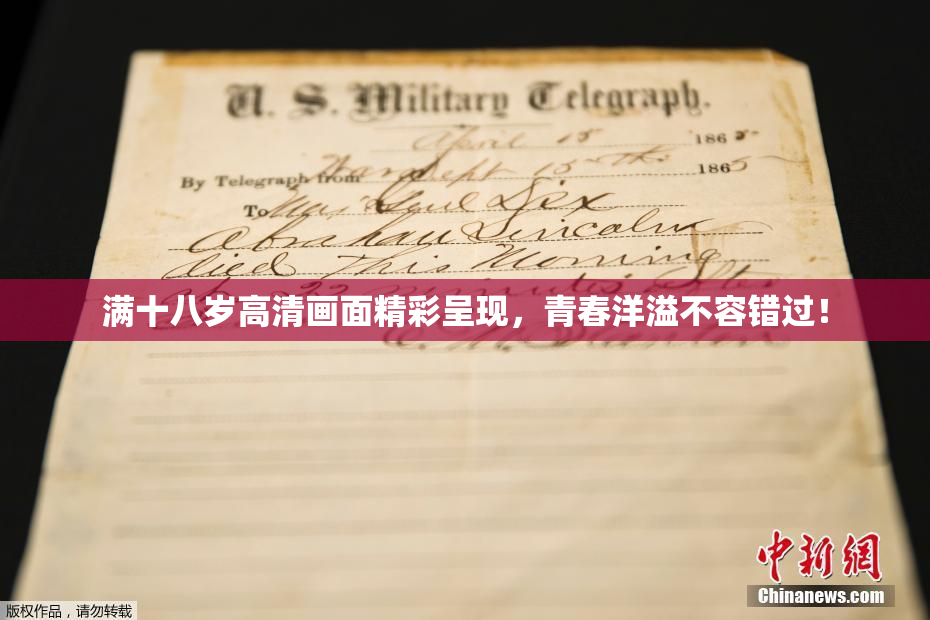 U. S. Military Telegraph.
April 15 1865
By Telegraph from War Dept 15th 1865
To Maj Genl Dix
Abraham Lincoln
died This Morning
22 minutes after
满十八岁高清画面精彩呈现，青春洋溢不容错过！
E. M. Stanton
中新网
Chinanews.com
版权作品，请勿转载